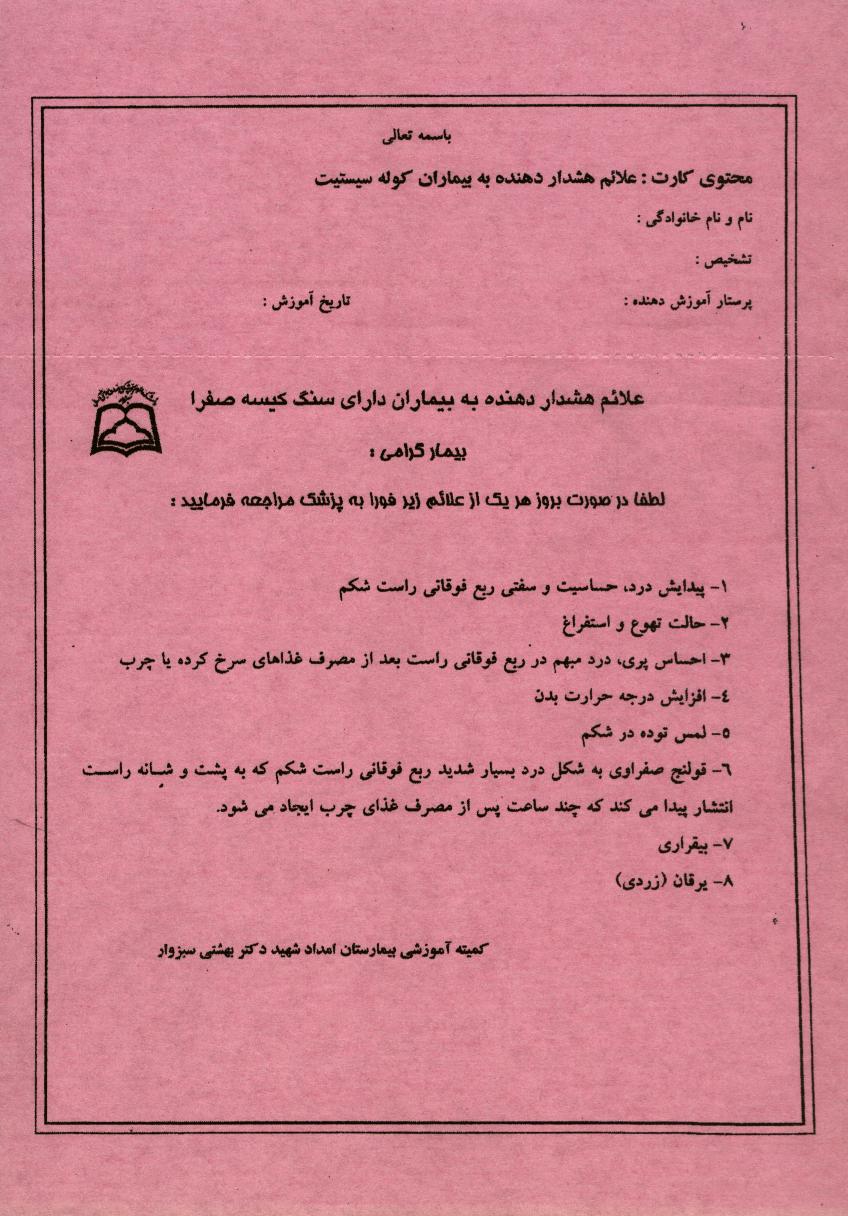 باسمه تعالی
محتوی کارت : علائم هشدار دهنده به بیماران کوله سیستیت
نام و نام خانوادگی :
تشخیص :
پرستار آموزش دهنده : تاریخ آموزش :
علائم هشدار دهنده به بیماران دارای سنگ کیسه صفرا
بیمار گرامی :
لطفا در صورت بروز هر یک از علائم زیر فورا به پزشک مراجعه فرمایید :
۱- پیدایش درد، حساسیت و سفتی ربع فوقانی راست شکم
۲- حالت تهوع و استفراغ
۳- احساس پری، درد مبهم در ربع فوقانی راست بعد از مصرف غذاهای سرخ کرده یا چرب
٤- افزایش درجه حرارت بدن
۵- لمس توده در شکم
٦- قولنج صفراوی به شکل درد بسیار شدید ربع فوقانی راست شکم که به پشت و شانه راست
انتشار پیدا می کند که چند ساعت پس از مصرف غذای چرب ایجاد می شود.
۷- بیقراری
۸- یرقان (زردی)
کمیته آموزشی بیمارستان امداد شهید دکتر بهشتی سبزوار